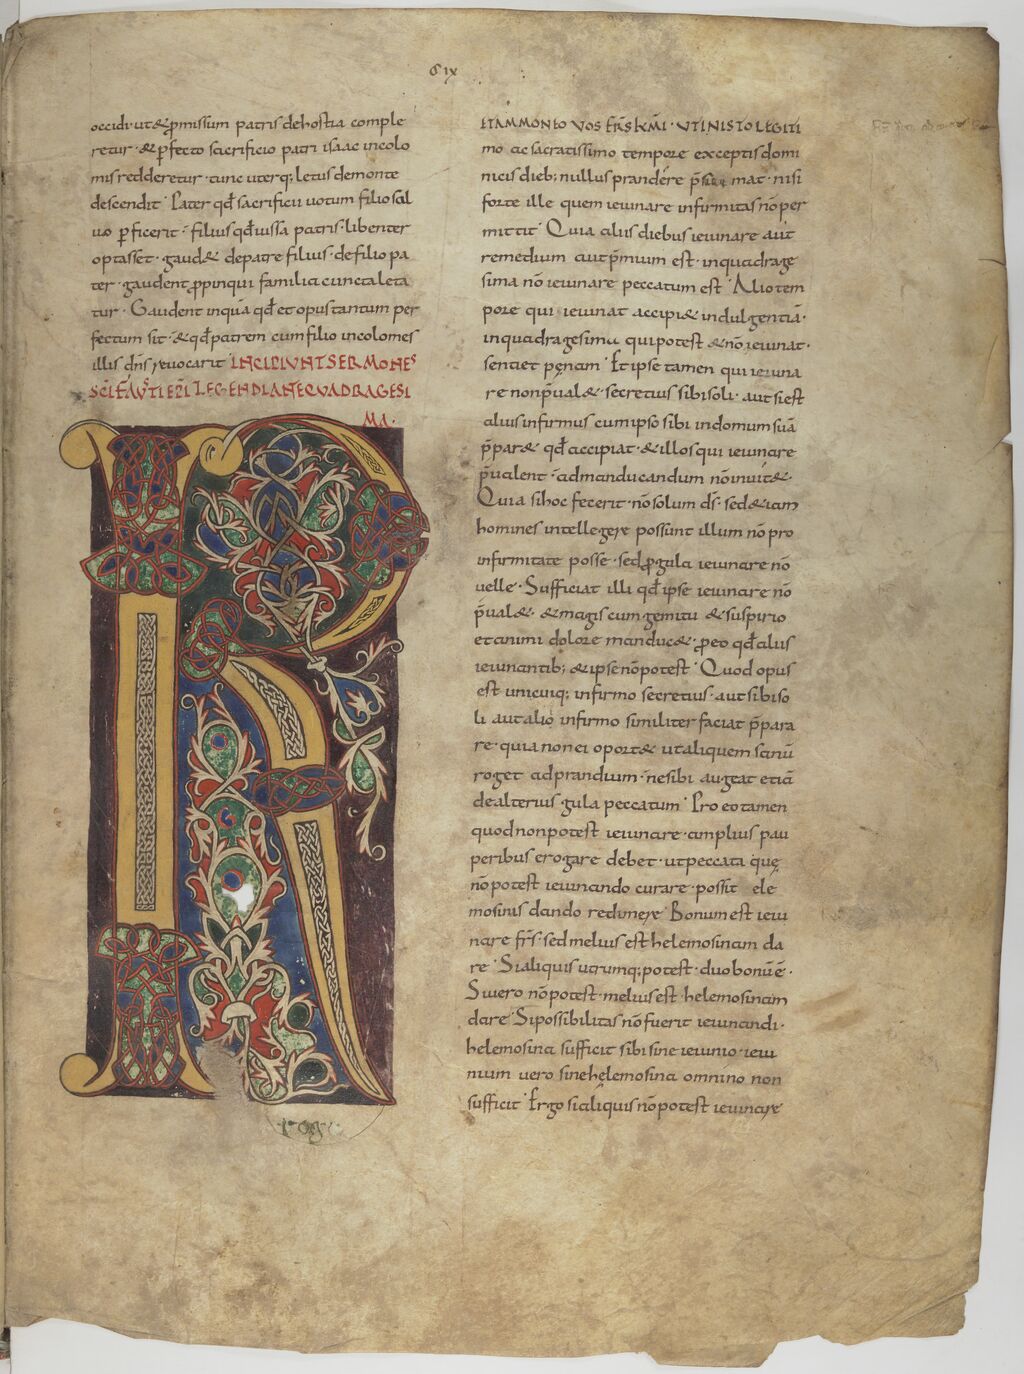 CIX
occidi· ut & p̄missum patris de hostia comple
retur· & ꝑfecto sacrificio patri isaac incolo
mis redderetur· tunc uterq; letus de monte
descendit· Pater qđ sacrificii uotum filio sal
uo ꝑficerit· filius qđ iussa patris· libenter
optasset· gaud& de patre filius· de filio pa
ter· gaudent ꝓpinqui familia cuncta leta
tur· Gaudent inquā qđ et opus tantum per
fectum sit· & qđ patrem cum filio incolomes
illis dn̄s reuocarit INCIPIUNT SERMONES
SC̄I FAUSTI EP̄I LEGENDI ANTE QUADRAGESI
MA·
R
roga
ITAM MONEO VOS FR̄S KM̄I· UT IN ISTO LEGITI
mo ac sacratissimo tempore exceptis domi
nicis dieb; nullus prandére p̄su mat· nisi
forte ille quem ieiunare infirmitas nō per
mittit· Quia aliis diebus ieiunare aut
remedium aut p̄mium est· in quadrage
sima nō ieiunare peccatum est· Alio tem
pore qui ieiunat accipi& indulgentiā·
in quadragesima qui potest & nō ieiunat·
sentiet penam· Et ipse tamen qui ieiuna
re non p̄ual& secretius sibi soli· aut si est
alius infirmus cum ipso sibi in domum suā
p̄par& qđ accipiat· & illos qui ieiunare
p̄ualent· ad manducandum nō inuit&·
Quia si hoc fecerit· nō solum dš· sed & iam
homines intellegere possunt illum nō pro
infirmitate posse· sed ꝓ gula ieiunare nō
uelle· Sufficiat illi qđ ipse ieiunare nō
p̄ual&· & magis cum gemitu & suspirio
et animi dolore manduc&· pro eo qđ aliis
ieiunantib; & ipse nō potest· Quod opus
est unicuiq; infirmo secretius· aut sibi so
li aut alio infirmo similiter faciat p̄para
re· quia non ei oport& ut aliquem sanū
roget ad prandium· ne sibi augeat etiā
de alterius gula peccatum· Pro eo tamen
quod non potest ieiunare· amplius pau
peribus erogare debet· ut peccata quę
nō potest ieiunando curare· possit ele
mosinis dando redimere· Bonum est ieiu
nare fr̄s· sed melius est helemosinam da
re· Si aliquis utrumq; potest· duo bona ē·
Si uero nō potest· melius est helemosinam
dare· Si possibilitas nō fuerit ieiunandi·
helemosina sufficit sibi sine ieiunio· ieiu
nium uero sine helemosina omnino non
sufficit· Ergo si aliquis nō potest ieiunare